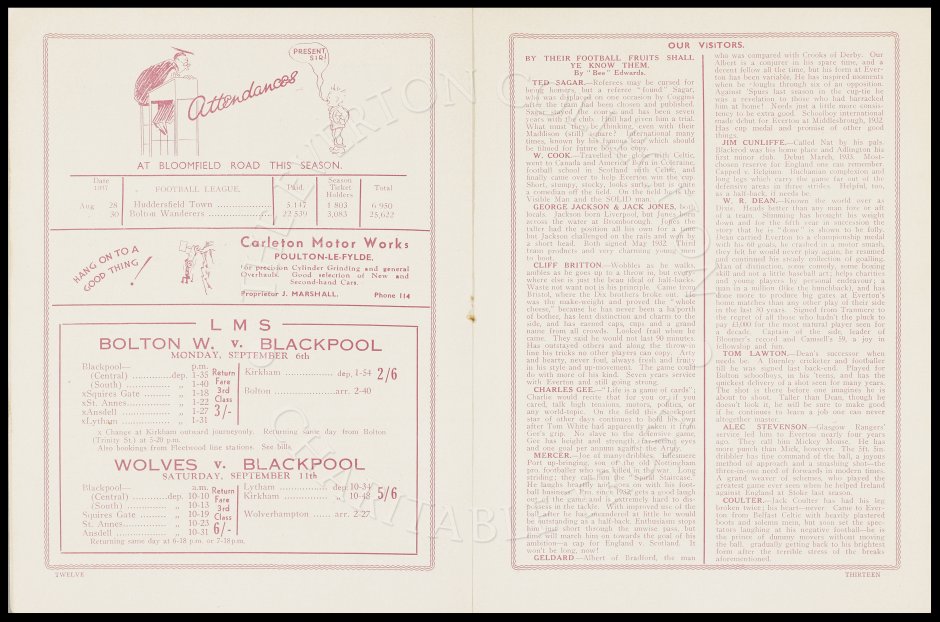 PRESENT SIR!
Attendances
AT BLOOMFIELD ROAD THIS SEASON.
Date 1937 FOOTBALL LEAGUE. Paid. Season Ticket Holders Total
Aug 28 Huddersfield Town 5 147 1 803 6 950
30 Bolton Wanderers 22 539 3,083 25,622
HANG ON TO A GOOD THING!
Carleton Motor Works
POULTON-LE-FYLDE.
for precision Cylinder Grinding and general
Overhauls. Good selection of New and
Second-hand Cars.
Proprietor J. MARSHALL. Phone 114
L M S
BOLTON W. v. BLACKPOOL
MONDAY, SEPTEMBER 6th
Blackpool— p.m.
(Central) dep. 1-35
(South) „ 1-40
xSquires Gate „ 1-18
xSt. Annes „ 1-22
xAnsdell „ 1-27
xLytham „ 1-31
Return Fare 3rd Class 3/-
Kirkham dep. 1-54 2/6
Bolton arr. 2-40
x Change at Kirkham outward journey only. Returning same day from Bolton
(Trinity St.) at 5-20 p.m.
Also bookings from Fleetwood line stations. See bills.
WOLVES v. BLACKPOOL
SATURDAY, SEPTEMBER 11th
Blackpool— a.m.
(Central) dep. 10-10
(South) „ 10-13
Squires Gate „ 10-19
St. Annes „ 10-23
Ansdell „ 10-31
Return Fare 3rd Class 6/-
Lytham dep. 10-34
Kirkham „ 10-48 5/6
Wolverhampton arr. 2-27
Returning same day at 6-18 p.m. or 7-18 p.m.
TWELVE
OUR VISITORS.
BY THEIR FOOTBALL FRUITS SHALL
YE KNOW THEM.
By "Bee" Edwards.
TED SAGAR.—Referees may be cursed for
being homers, but a referee "found" Sagar,
who was displaced on one occasion by Coggins
after the team had been chosen and published.
Sagar stayed the course and has been seven
years with the club. Hull had given him a trial.
What must they be thinking, even with their
Maddison (still) there? International many
times, known by his famous leap which should
be filmed for future boys to copy.
W. COOK.—Travelled the globe with Celtic,
went to Canada and America. Born in Coleraine,
football school in Scotland with Celtic, and
finally came over to help Everton win the cup.
Short, stumpy, stocky, looks surly, but is quite
a comedian off the field. On the field he is the
Visible Man and the SOLID man.
GEORGE JACKSON & JACK JONES, both
locals. Jackson born Liverpool, but Jones born
across the water at Bromborough. Jones the
taller had the position all his own for a time
but Jackson challenged on the rails and won by
a short head. Both signed May 1932. Third
team products and very charming young men
to boot.
CLIFF BRITTON.—Wobbles as he walk,
ambles as he goes up to a throw in, but every-
where else is just the beau ideal of half-backs.
Waste not want not is his principle. Came from
Bristol, where the Dix brothers broke out. He
was the make-weight and proved the "whole
cheese," because he has never been a ha'porth
of bother, has lent distinction and charm to the
side, and has earned caps, cups and a grand
name from all crowds. Looked frail when he
came. They said he would not last 90 minutes.
Has outstayed others and along the throw-in
line his tricks no other players can copy. Arty
and hearty, never foul, always fresh and fruity
in his style and up-movement. The game could
do with more of his kind. Seven years service
with Everton and still going strong.
CHARLES GEE.—"Life is a game of cards";
Charlie would recite that for you or, if you
cared, talk high tensions, motors, politics, or
any world-topic. On the field this Stockport
star of other days continues to hold his own
after Tom White had apparently taken it from
Gee's grip. No slave to the defensive game,
Gee has height and strength, far-seeing eyes
and one goal per annum against the Army.
MERCER.—Joe of many dribbles. Ellesmere
Port up-bringing, son of the old Nottingham
pro. footballer who was killed in the war. Long
striding; they call him the "Spatial Staircase."
He laughs heartily and goes on with his foot-
ball business. Pro. since 1932, gets a good laugh
out of the game and is extremely hard to dis-
possess in the tackle. With improved use of the
ball after he has meandered so little he would
be outstanding as a half-back. Enthusiasm stops
him just short through the unwise pass, but
time will march him on towards the goal of his
ambition—a cap for England v. Scotland. It
won't be long, now!
GELDARD.—Albert of Bradford, the man
who was compared with Crooks of Derby. Our
Albert is a conjurer in his spare time, and a
decent fellow all the time, but his form at Ever-
ton has been variable. He has inspired moments
when he ploughs through six of an opposition.
Against 'Spurs last season in the cup-tie he
was a revelation to those who had barracked
him at home! Needs just a little more consis-
tency to be extra good. Schoolboy international
made debut for Everton at Middlesbrough, 1932.
Has cup medal and promise of other good
things.
JIM CUNLIFFE.—Called Nat by his pals.
Blackrod was his home place and Adlington his
first minor club. Debut March, 1933. Most-
chosen reserve for England ever one remember.
Capped v. Belgium. Buchanian complexion and
long legs which carry the game far out of the
defensive areas in three strides. Helpful, too,
as a half-back, if needs be.
W. R. DEAN.—Known the world over as
Dixie. Heads better than any man fore or aft
of a team. Slimming has brought his weight
down and for the fifth year in succession the
story that he is "done" is shown to be folly.
Dean carried Everton to a championship medal
with his 60 goals, he crashed in a motor smash,
they felt he would never play again, he resumed
and continued his steady collection of goalling.
Man of distinction, some comedy, some boxing
skill and not a little baseball art; helps charities
and young players by personal endeavour; a
man in a million (like the hunchback), and has
done more to produce big gates at Everton's
home matches than any other play of their side
in the last 30 years. Signed from Tranmere to
the regret of all those who hadn't the pluck to
pay £3,000 for the most natural player seen for
a decade. Captain of the side, leader of
Bloomer's record and Camsell's 59, a joy in
fellowship and fun.
TOM LAWTON.—Dean's successor when
needs be. A Burnley cricketer and footballer
till he was signed last back-end. Played for
Bolton schoolboys, in his 'teens, and has the
quickest delivery of a shot seen for many years.
The shot is there before one imagines he is
about to shoot. Taller than Dean, though he
doesn't look it, he will be sure to make good
if he continues to learn a job one can never
altogether master.
ALEC STEVENSON.—Glasgow Rangers'
service led him to Everton nearly four years
ago. They call him Mickey Mouse. He has
more punch than Mick, however. The 5ft. 5in.
dribbler has fine command of the ball, a joyous
method of approach and a smashing shot—the
three-in-one need of forwards in modern times.
A great weaver of schemes, who played the
greatest game ever seen when he helped Ireland
against England at Stoke last season.
COULTER.—Jack Coulter has had his leg
broken twice; his heart—never. Came to Ever-
ton from Belfast Celtic with heavily plastered
boots and solemn mien, but soon set the spec-
tators laughing at his secretive football—he is
the prince of dummy movers without moving
the ball, gradually getting back to his brightest
form after the terrible stress of the breaks
aforementioned.
THIRTEEN